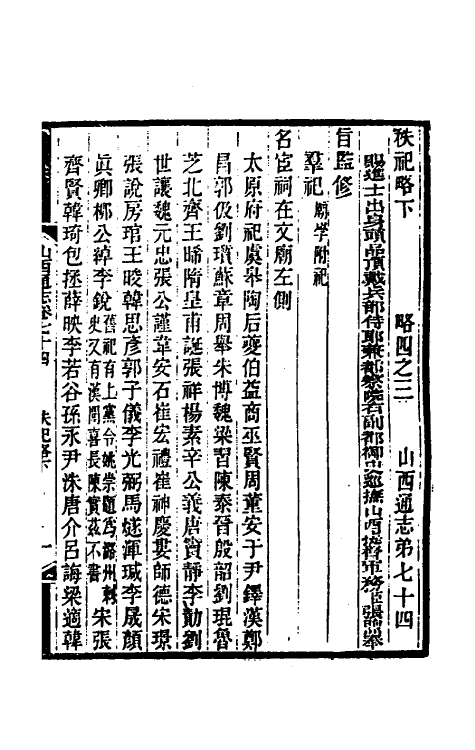 秩祀略下　略四之三　山西通志弟七十四
賜進士出身頭品頂戴兵部侍郎兼都察院右副都御史巡撫山西提督軍務
旨監修
羣祀廟學附祀
名宦祠在文廟左側
太原府祀虞皋陶后夔伯益商巫賢周董安于尹鐸漢鄭
昌郭伋劉瓆蘇章周舉朱博魏梁習陳泰晉殷韶劉琨魯
芝北齊王晞隋皇甫誕張祥楊素辛公義唐竇靜李勣劉
世讓魏元忠張公謹韋安石崔宏禮崔神慶婁師德宋璟
張說房琯王晙韓思彥郭子儀李光弼馬燧渾瑊李晟顏
眞卿郗公綽李銳舊祀有上黨令姚崇題爲潞州刺史又有漢聞喜長陳實茲不書宋張
齊賢韓琦包拯薛映李若谷孫永尹洙唐介呂誨梁適韓
山西通志卷七十四　秩祀略下　一